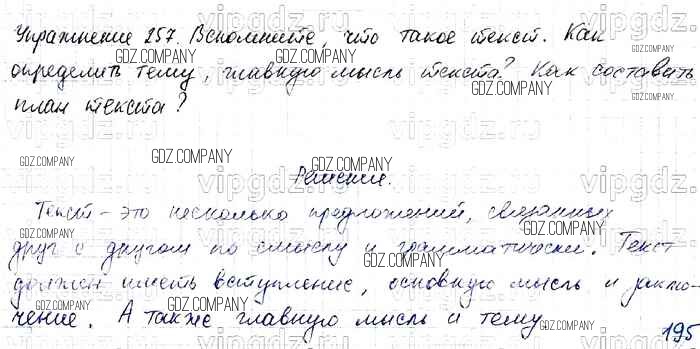 Упражнение 257. Вспомните, что такое текст. Как
определить тему, главную мысль текста? Как составить
план текста?
Решение.
Текст - это несколько предложений, связанных
друг с другом по смыслу и грамматически. Текст
должен иметь вступление, основную мысль и заклю-
чение. А также главную мысль и тему
195